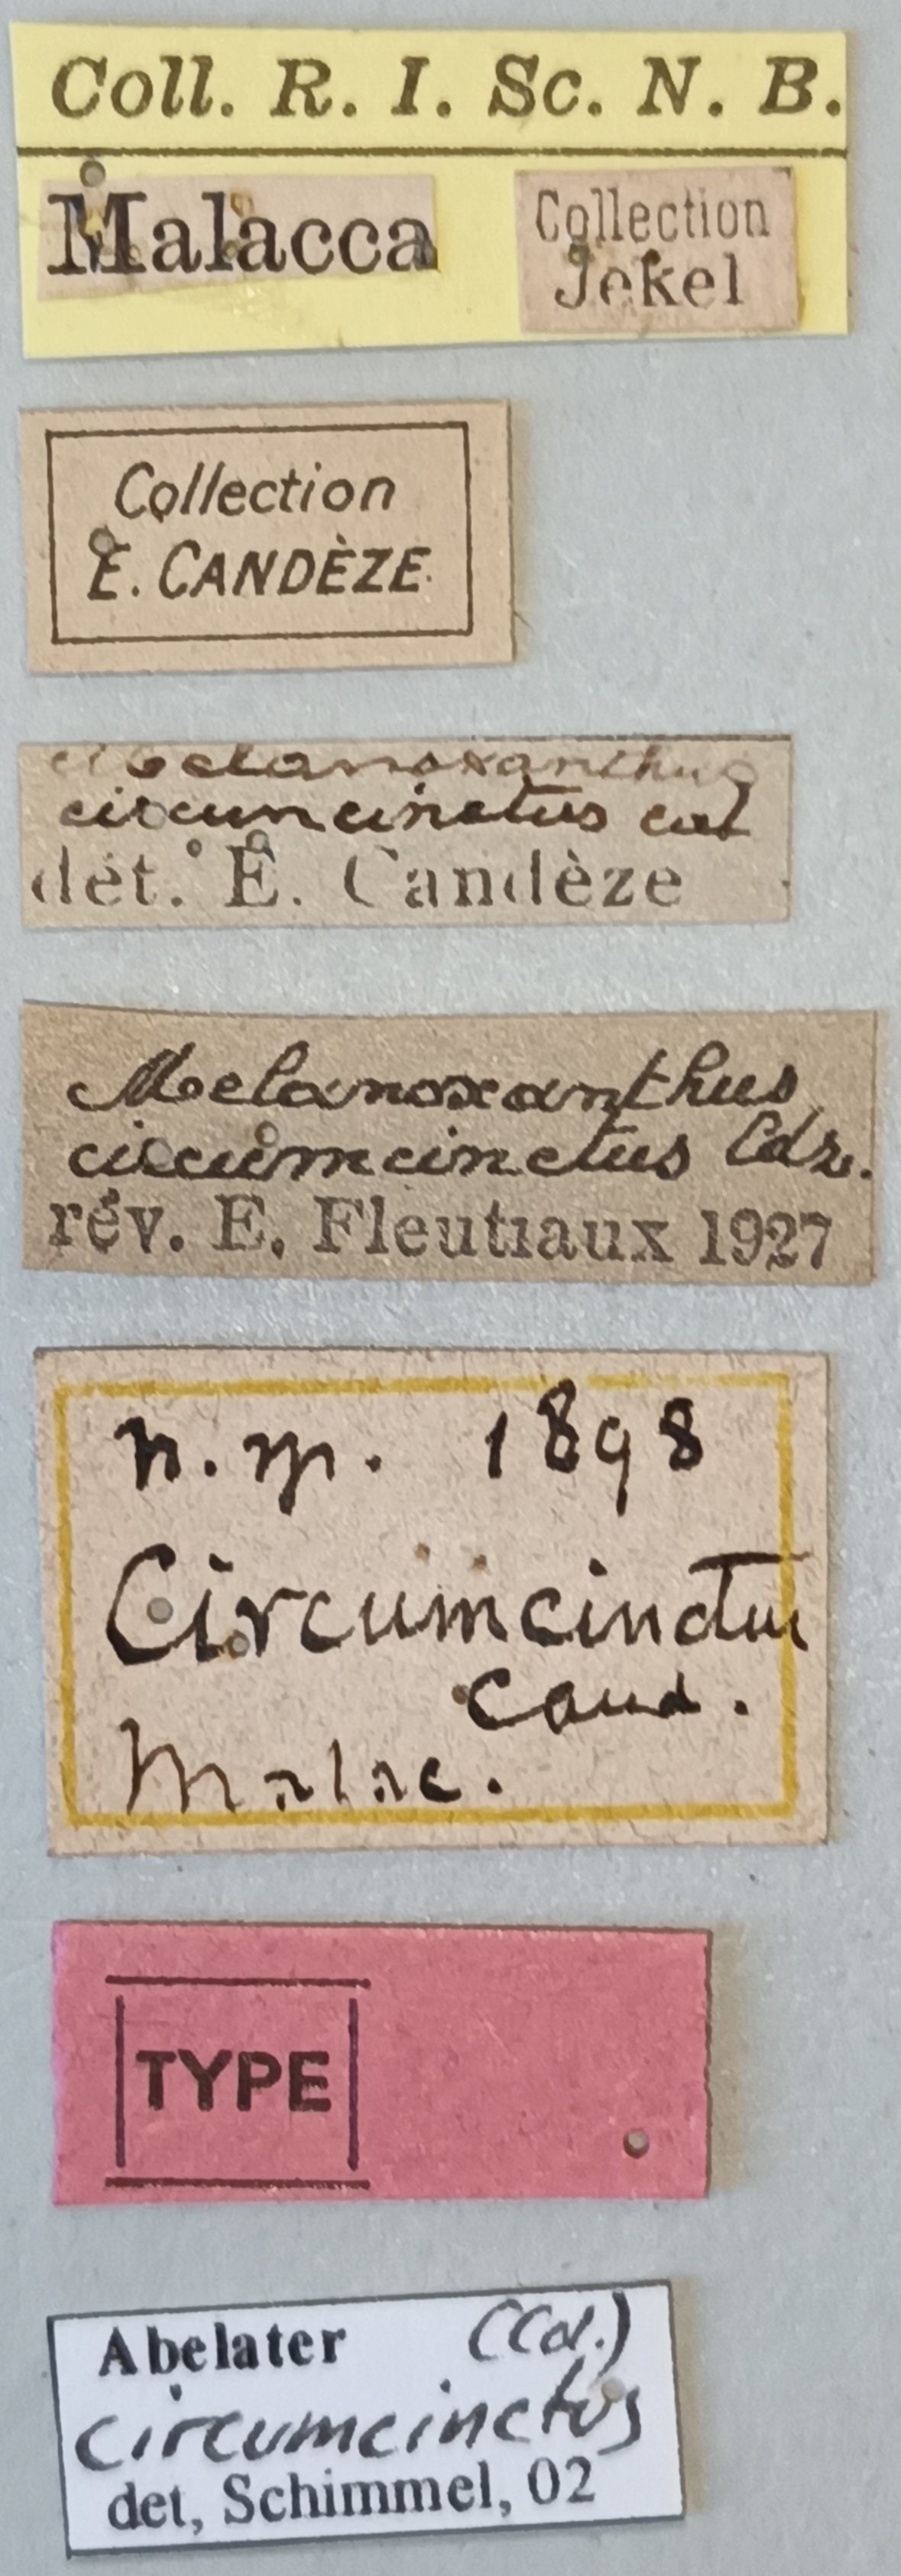 Coll. R. I. Sc. N. B.
Malacca
Collection
Jekel
Collection
E. CANDÈZE
Melanoxanthus
circumcinctus cd
dét. E. Candèze
Melanoxanthus
circumcinctus Cdz.
rév. E. Fleutiaux 1927
n. sp. 1898
Circumcinctus
Cand.
Malac.
TYPE
Abelater (Cd.)
circumcinctus
det, Schimmel, 02